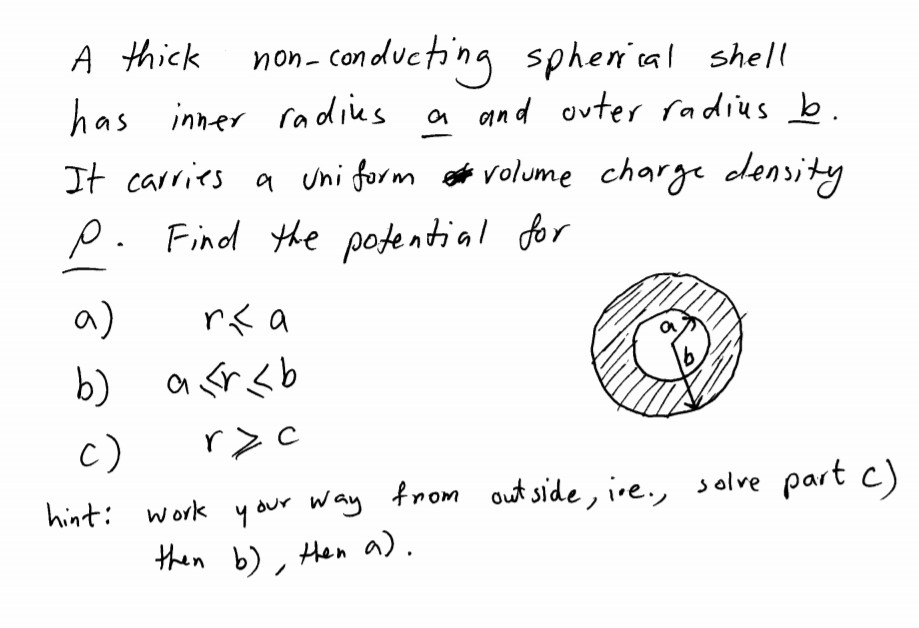 A thick non-conducting spherical shell
has inner radius a and outer radius b.
It carries a uniform volume charge density
ρ. Find the potential for
a) r ≤ a
b) a ≤ r ≤ b
c) r ≥ c
a
b
hint: work your way from outside, i.e., solve part c)
then b), then a).